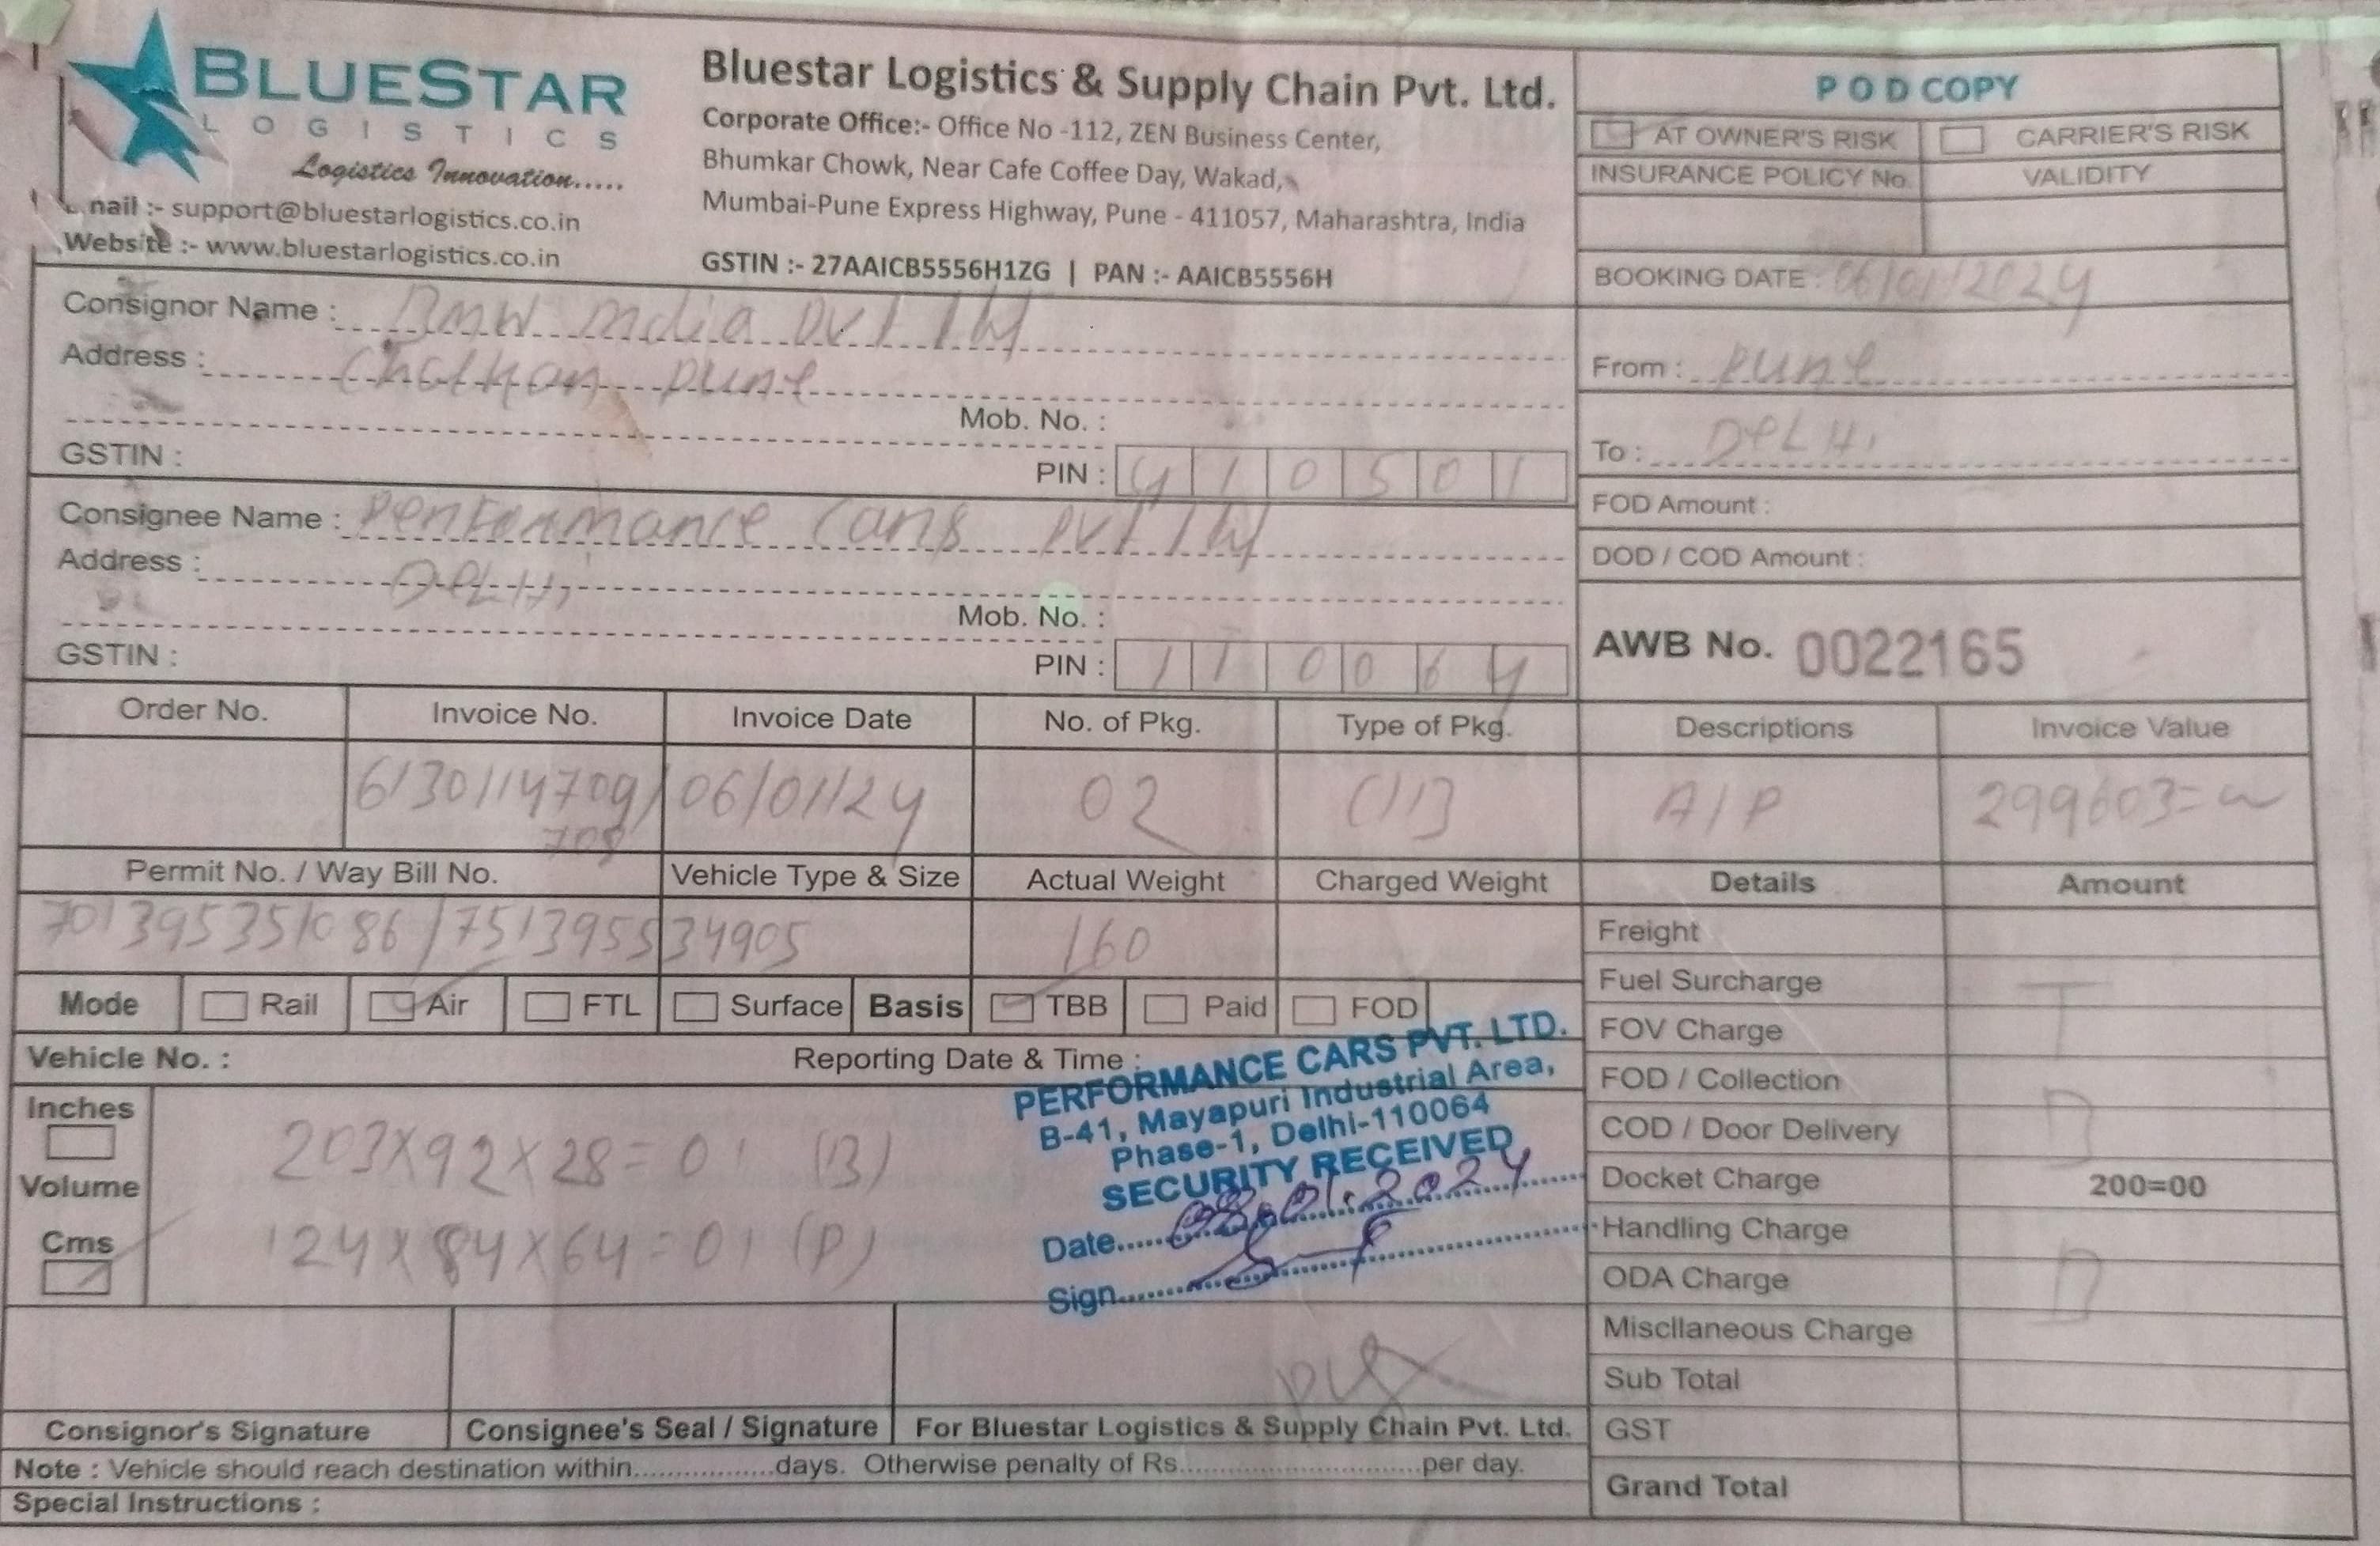 BLUESTAR
LOGISTICS
Logistics Innovation.....
nail :- support@bluestarlogistics.co.in
Website :- www.bluestarlogistics.co.in
Bluestar Logistics & Supply Chain Pvt. Ltd.
Corporate Office:- Office No -112, ZEN Business Center,
Bhumkar Chowk, Near Cafe Coffee Day, Wakad,
Mumbai-Pune Express Highway, Pune - 411057, Maharashtra, India
GSTIN :- 27AAICB5556H1ZG | PAN :- AAICB5556H
POD COPY
AT OWNER'S RISK CARRIER'S RISK
INSURANCE POLICY No. VALIDITY
BOOKING DATE : 06/01/2024
From : Pune
To : DeLHi
FOD Amount :
DOD / COD Amount :
AWB No. 0022165
Consignor Name : BMW India Pvt ltd
Address : Chatkan Pune
Mob. No. :
GSTIN : PIN : 410501
Consignee Name : Performance Cars Pvt ltd
Address : DeLHi
Mob. No. :
GSTIN : PIN : 110064
Order No. Invoice No. Invoice Date No. of Pkg. Type of Pkg. Descriptions Invoice Value
6130114709/ 06/01/24 02 A/P 299603=
708
Permit No. / Way Bill No. Vehicle Type & Size Actual Weight Charged Weight Details Amount
701395351086/751395534905 160
Mode Rail Air FTL Surface Basis TBB Paid FOD
Vehicle No. : Reporting Date & Time :
Inches
Volume
Cms
203X92X28=01 (B)
124X84X64=01 (P)
PERFORMANCE CARS PVT. LTD.
B-41, Mayapuri Industrial Area,
Phase-1, Delhi-110064
SECURITY RECEIVED
Date.....08.01.2024
Sign.....
Freight
Fuel Surcharge
FOV Charge
FOD / Collection
COD / Door Delivery
Docket Charge 200=00
Handling Charge
ODA Charge
Miscllaneous Charge
Sub Total
GST
Grand Total
T
B
B
Consignor's Signature Consignee's Seal / Signature For Bluestar Logistics & Supply Chain Pvt. Ltd.
Note : Vehicle should reach destination within................days. Otherwise penalty of Rs............................per day.
Special Instructions :